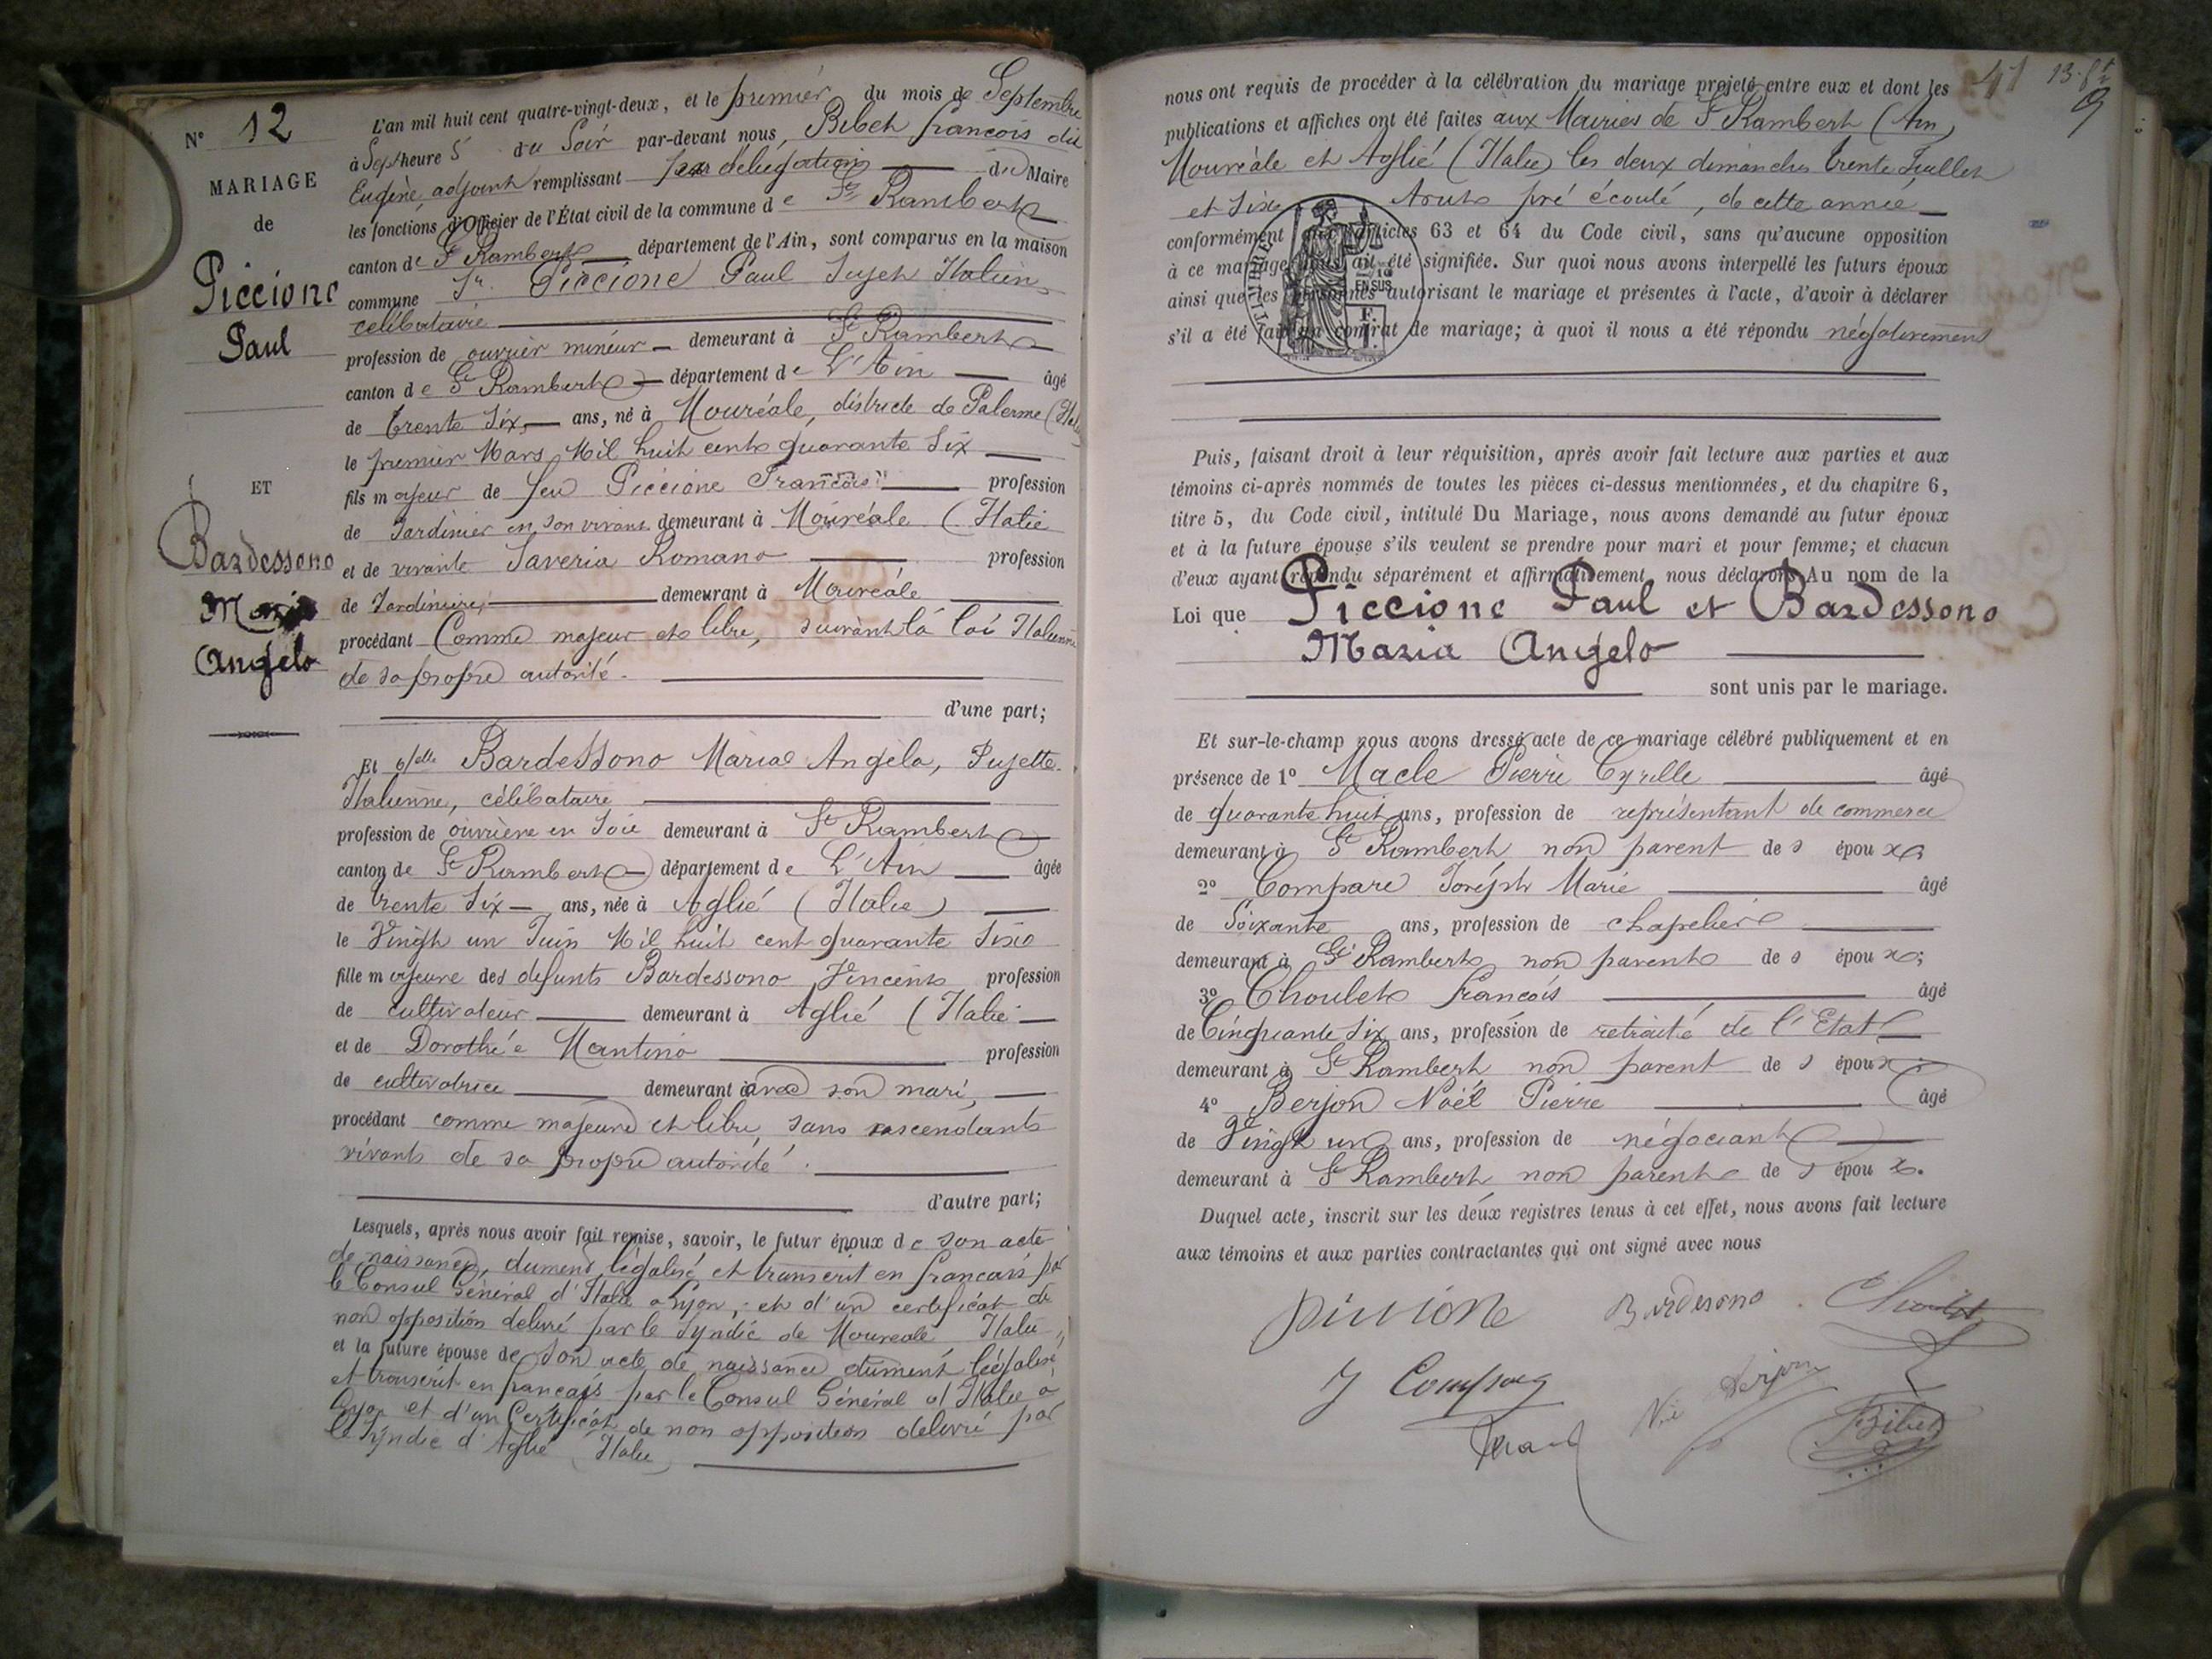 N° 12
MARIAGE
de
Piccione
Paul
ET
Bardessono
Maria
Angela
L'an mil huit cent quatre-vingt-deux, et le premier du mois de Septembre
à Sept heure S du Soir par-devant nous, Bibet francois dit
Eugène, adjoint remplissant par délégation du Maire
les fonctions d'Officier de l'État civil de la commune de St Rambert
canton de St Rambert, département de l'Ain, sont comparus en la maison
commune Sr. Piccione Paul Sujet Italien,
célibataire
profession de ouvrier mineur demeurant à St Rambert
canton de St Rambert département de L'Ain âgé
de trente Six, ans, né à Mouréale, districte de Palerme (Italie
le premier Mars Mil huit cent quarante Six
fils majeur de feu Piccione Francois profession
de Jardinier en son vivant demeurant à Mouréale (Italie
et de vivante Saveria Romano profession
de Jardinière, demeurant à Mouréale
procédant Comme majeur et libre, suivant la loi Italienne
de sa propre autorité.
d'une part;
Et Delle Bardessono Maria Angéla, Sujette
Italienne, célibataire
profession de ouvrière en Soie demeurant à St Rambert
canton de St Rambert département de L'Ain âgée
de trente Six ans, née à Aglié (Italie)
le Vingt un Juin Mil huit cent quarante Six
fille majeure des défunts Bardessono Vincent profession
de cultivateur demeurant à Aglié (Italie
et de Dorothée Mantino profession
de cultivatrice demeurant avec son mari,
procédant comme majeure et libre, sans ascendants
vivants de sa propre autorité.
d'autre part;
Lesquels, après nous avoir fait remise, savoir, le futur époux de son acte
de naissance, dument légalisé et transcrit en francais par
le Consul Général d'Italie à Lyon; et d'un certificat de
non opposition délivré par le Syndic de Mouréale Italie,
et la future épouse de son acte de naissance dûment légalisé
et transcrit en francais par le Consul Général d'Italie à
Lyon et d'un Certificat de non opposition délivré par
le Syndic d'Aglié (Italie)
41 13.
nous ont requis de procéder à la célébration du mariage projeté entre eux et dont les
publications et affiches ont été faites aux Mairies de St Rambert (Ain)
Mouréale et Aglié (Italie) les deux dimanches trente Juillet
et Six Aout pré écoulé, de cette année
conformément aux articles 63 et 64 du Code civil, sans qu'aucune opposition
à ce mariage nous ait été signifiée. Sur quoi nous avons interpellé les futurs époux
ainsi que les personnes autorisant le mariage et présentes à l'acte, d'avoir à déclarer
s'il a été fait un contrat de mariage; à quoi il nous a été répondu négativement
Puis, faisant droit à leur réquisition, après avoir fait lecture aux parties et aux
témoins ci-après nommés de toutes les pièces ci-dessus mentionnées, et du chapitre 6,
titre 5, du Code civil, intitulé Du Mariage, nous avons demandé au futur époux
et à la future épouse s'ils veulent se prendre pour mari et pour femme; et chacun
d'eux ayant répondu séparément et affirmativement, nous déclarons Au nom de la
Loi que Piccione Paul et Bardessono
Maria Angela
sont unis par le mariage.
Et sur-le-champ nous avons dressé acte de ce mariage célébré publiquement et en
présence de 1° Macle Pierre Cyrille âgé
de quarante huit ans, profession de représentant de commerce
demeurant à St Rambert non parent des époux;
2° Compare Joseph Marie âgé
de Soixante ans, profession de chapelier
demeurant à St Rambert non parent des époux;
3° Choulet francois âgé
de Cinquante Six ans, profession de retraité de l'Etat
demeurant à St Rambert non parent des époux;
4° Berjon Noël Pierre âgé
de Vingt un ans, profession de négociant
demeurant à St Rambert non parent des époux.
Duquel acte, inscrit sur les deux registres tenus à cet effet, nous avons fait lecture
aux témoins et aux parties contractantes qui ont signé avec nous
Piccione Bardesono Choulet
J Compare Berjon
Bibet